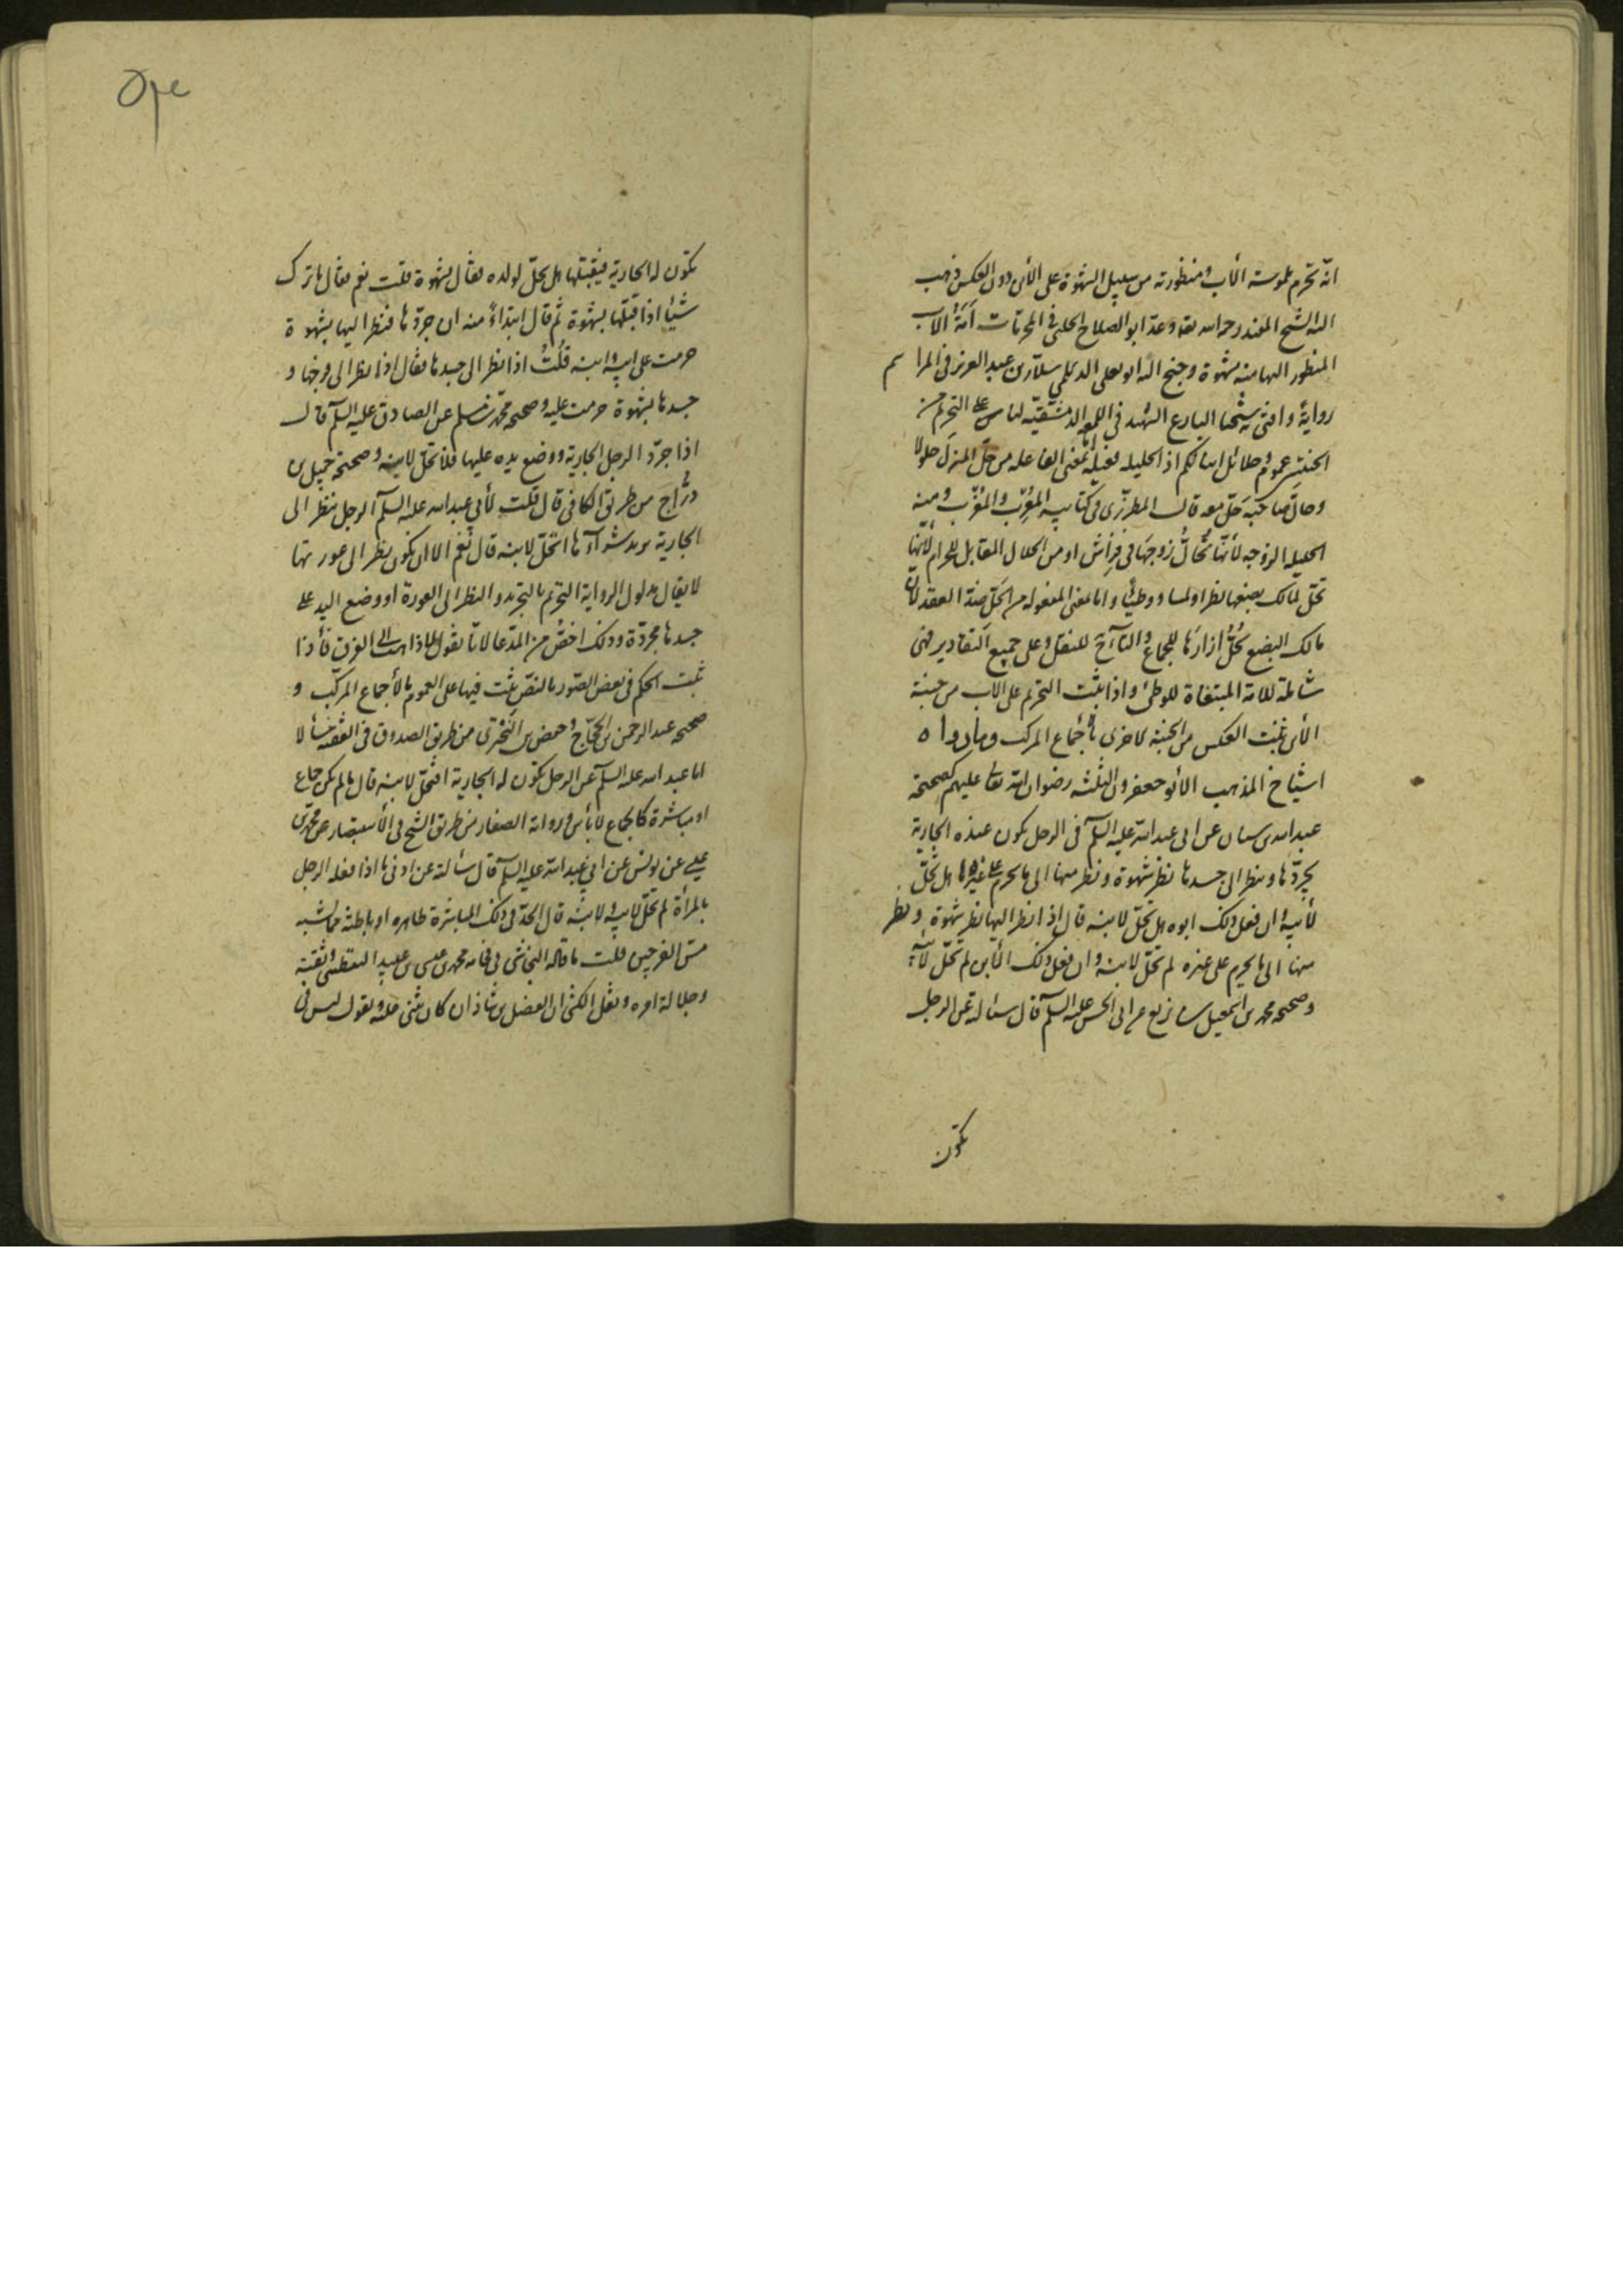 انّه تحرم ملموسة الأب ومنظورته من سبيل الشهوة على الأبن دون العكس ذهب
اليه الشيخ المفيد رحمه الله تعا وعدّ ابو الصلاح الحلبى فى المحرمات أمَةُ الأب
المنظور اليها منه بشهوة وجنح اليه ابو يعلى الديلمي سلّار بن عبد العزيز فى المراسم
رواية وافتى به شيخنا البارع الشهيد فى اللمعه الدمشقيّه لنا على التحريم من
عموم وحلائل ابنائكم اذ الحليله فعيله بمعنى الفاعله من حلّ المنزل حلولا
وحالّ صاحبَه حَلّ معه قال المطرّزى فى كتابيه المُعْرِب والمُغْرِب ومنه
الحليله الزوجه لأنّها تُحالّ زوجها فى فِراش او من الحلال المقابل للحرام لأنها
تحلّ لمالك بضعها نظرا ولمسا ووطيًا واما بمعنى المفعوله من الحَلّ ضدّ العقد لأنّ
مالك البضع يَحُلُّ ازارَها للجماع والتاء للنقل وعلى جميع التقادير فهى
شاملة للامة المبتغاة للوطئ واذا ثبت التحريم على الاب من جنبة
الأبن ثبت العكس من الجنبة الاخرى بالأجماع المركب وما رواه
اشياخ المذهب الأبو جعفرون الثلثه رضوان الله تعالى عليهم كصحيحة
عبد الله بن سنان عن ابى عبد الله عليه السلم فى الرجل يكون عنده الجارية
يجرّدها وينظر الى جسدها نظر شهوة وينظر منها الى ما يحرم على غيره هل تحلّ
لأبيه وان فعل ذلك ابوه هل تحلّ لابنه قال اذا نظر اليها نظر شهوة ونظر
منها الى ما يحرم على غيره لم تحلّ لابنه وان فعل ذلك الأبن لم تحلّ لأبيه
وصحيحه محمد بن اسمعيل بن بزيع عن ابى الحسن عليه السلم قال سئالته عن الرجل
يكون
يكون له الجارية فيقبّلها هل يحلّ لولده فقال بشهوة قلت نعم فقال ما ترك
شيئا اذا قبّلها بشهوة ثم قال ابتداءً منه ان جرّدها فنظر اليها بشهوة
حرمت على ابيه وابنه قُلتُ اذا نظر الى جسدها فقال اذا نظر الى فرجها و
جسدها بشهوة حرمت عليه وصحيحه محمد بن مسلم عن الصادق عليه السلم قال
اذا جرّد الرجل الجارية ووضع يده عليها فلا تحلّ لابنه وصحيحة جميل بن
درّاج من طريق الكافى قال قلت لأبي عبد الله عليه السلم الرجل ينظر الى
الجارية يريد شراءها اتحلّ لابنه قال نعم الا ان يكون نظر الى عورتها
لا يقال مدلول الرواية التحريم بالتجريد والنظر الى العورة او ووضع اليد على
جسدها مجردّة وذلك اخصّ من المدّعا لانّا نقول الفرق فأذا
ثبت الحكم فى بعض الصّور بالنصّ يثبت فيها على العموم بالأجماع المركّب و
صحيحه عبد الرحمن بن الحجّاج وحفص بن البَختَرى من طريق الصدوق فى الفقيه سئالا
ابا عبد الله عليه السلم عن الرجل يكون له الجارية افتحلّ لابنه قال ما لم يكن جماع
او مباشرة كالجماع لا بأس ورواية الصفار من طريق الشيخ فى الأستبصار عن محمد بن
عيسى عن يونس عن ابي عبد الله عليه السلم قال سئالته عن ادنى ما اذا فعله الرجل
بالمرأة لم تحلّ لابيه ولابنه قال الحدّ فى ذلك المباشرة ظاهره او باطنه ممّا يشبه
مسّ الفرجين قلت ما قاله النجاشى فى محمد بن عيسى بن عبيد اليقطينى وثقته
وجلالة امره ونقل الكشى ان الفضل بن شاذان كان يثنى عليه ويقول ليس فى